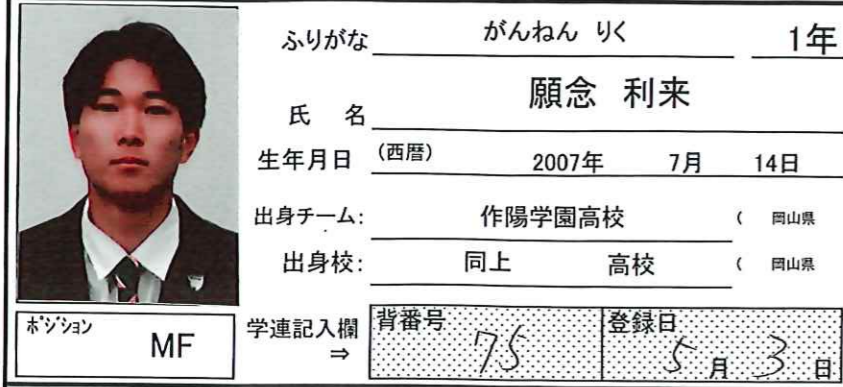 ふりがな がんねん りく 1年
氏 名 願念 利来
生年月日 (西暦) 2007年 7月 14日
出身チーム: 作陽学園高校 ( 岡山県
出身校: 同上 高校 ( 岡山県
ポジション MF
学連記入欄 ⇒ 背番号 75 登録日 5月 3日